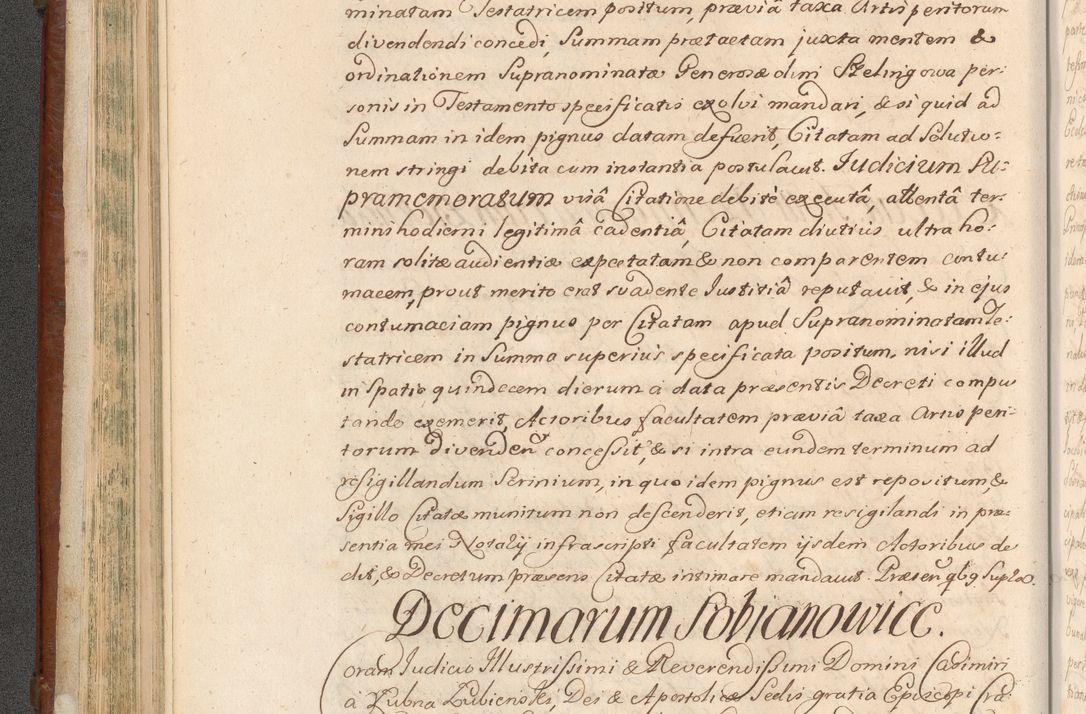 minatam Testatricem positum, præviâ taxa Artis peritorum
divendendi concedi, Summam prætactam juxta mentem &
ordinationem Supranominatæ Generosæ olim Szelingowa per-
sonis in Testamento specificatis exolvi mandari, & si quid ad
Summam in idem pignus datam defuerit, Citatam ad Solutio-
nem stringi debita cum instantia postulavit. Iudicium Su-
pramemoratum visâ Citatione debitè executâ, attentâ ter-
mini hodierni legitimâ cadentiâ, Citatam diutius ultra ho-
ram solitæ audientiæ expectatam & non comparentem contu-
macem, prout merito erat svadente Iustitiâ reputavit, & in ejus
contumaciam pignus per Citatam apud Supranominatam Te-
statricem in Summa superius specificata positum, nisi illud
in Spatio quindecem dierum a data præsentis Decreti compu
tando exemerit, Actoribus facultatem præviâ taxa Artis peri-
torum divenden concessit, & si intra eundem terminum ad
resigillandum Scrinium, in quo idem pignus est repositum, &
Sigillo Citatæ munitum non descenderit, etiam resigilandi in præ-
sentia mei Notarÿ infrascripti facultatem ÿsdem Actoribus de
dit, & Decretum præsens Citatæ intimare mandavit. Præsen qbg Supra.
Decimarum Sobianowice.
Coram Iudicio Illustrissimi & Reverendissimi Domini Casimiri
à Łubna Łubienski, Dei & Apostolicæ Sedis gratia Episcopi Cra-